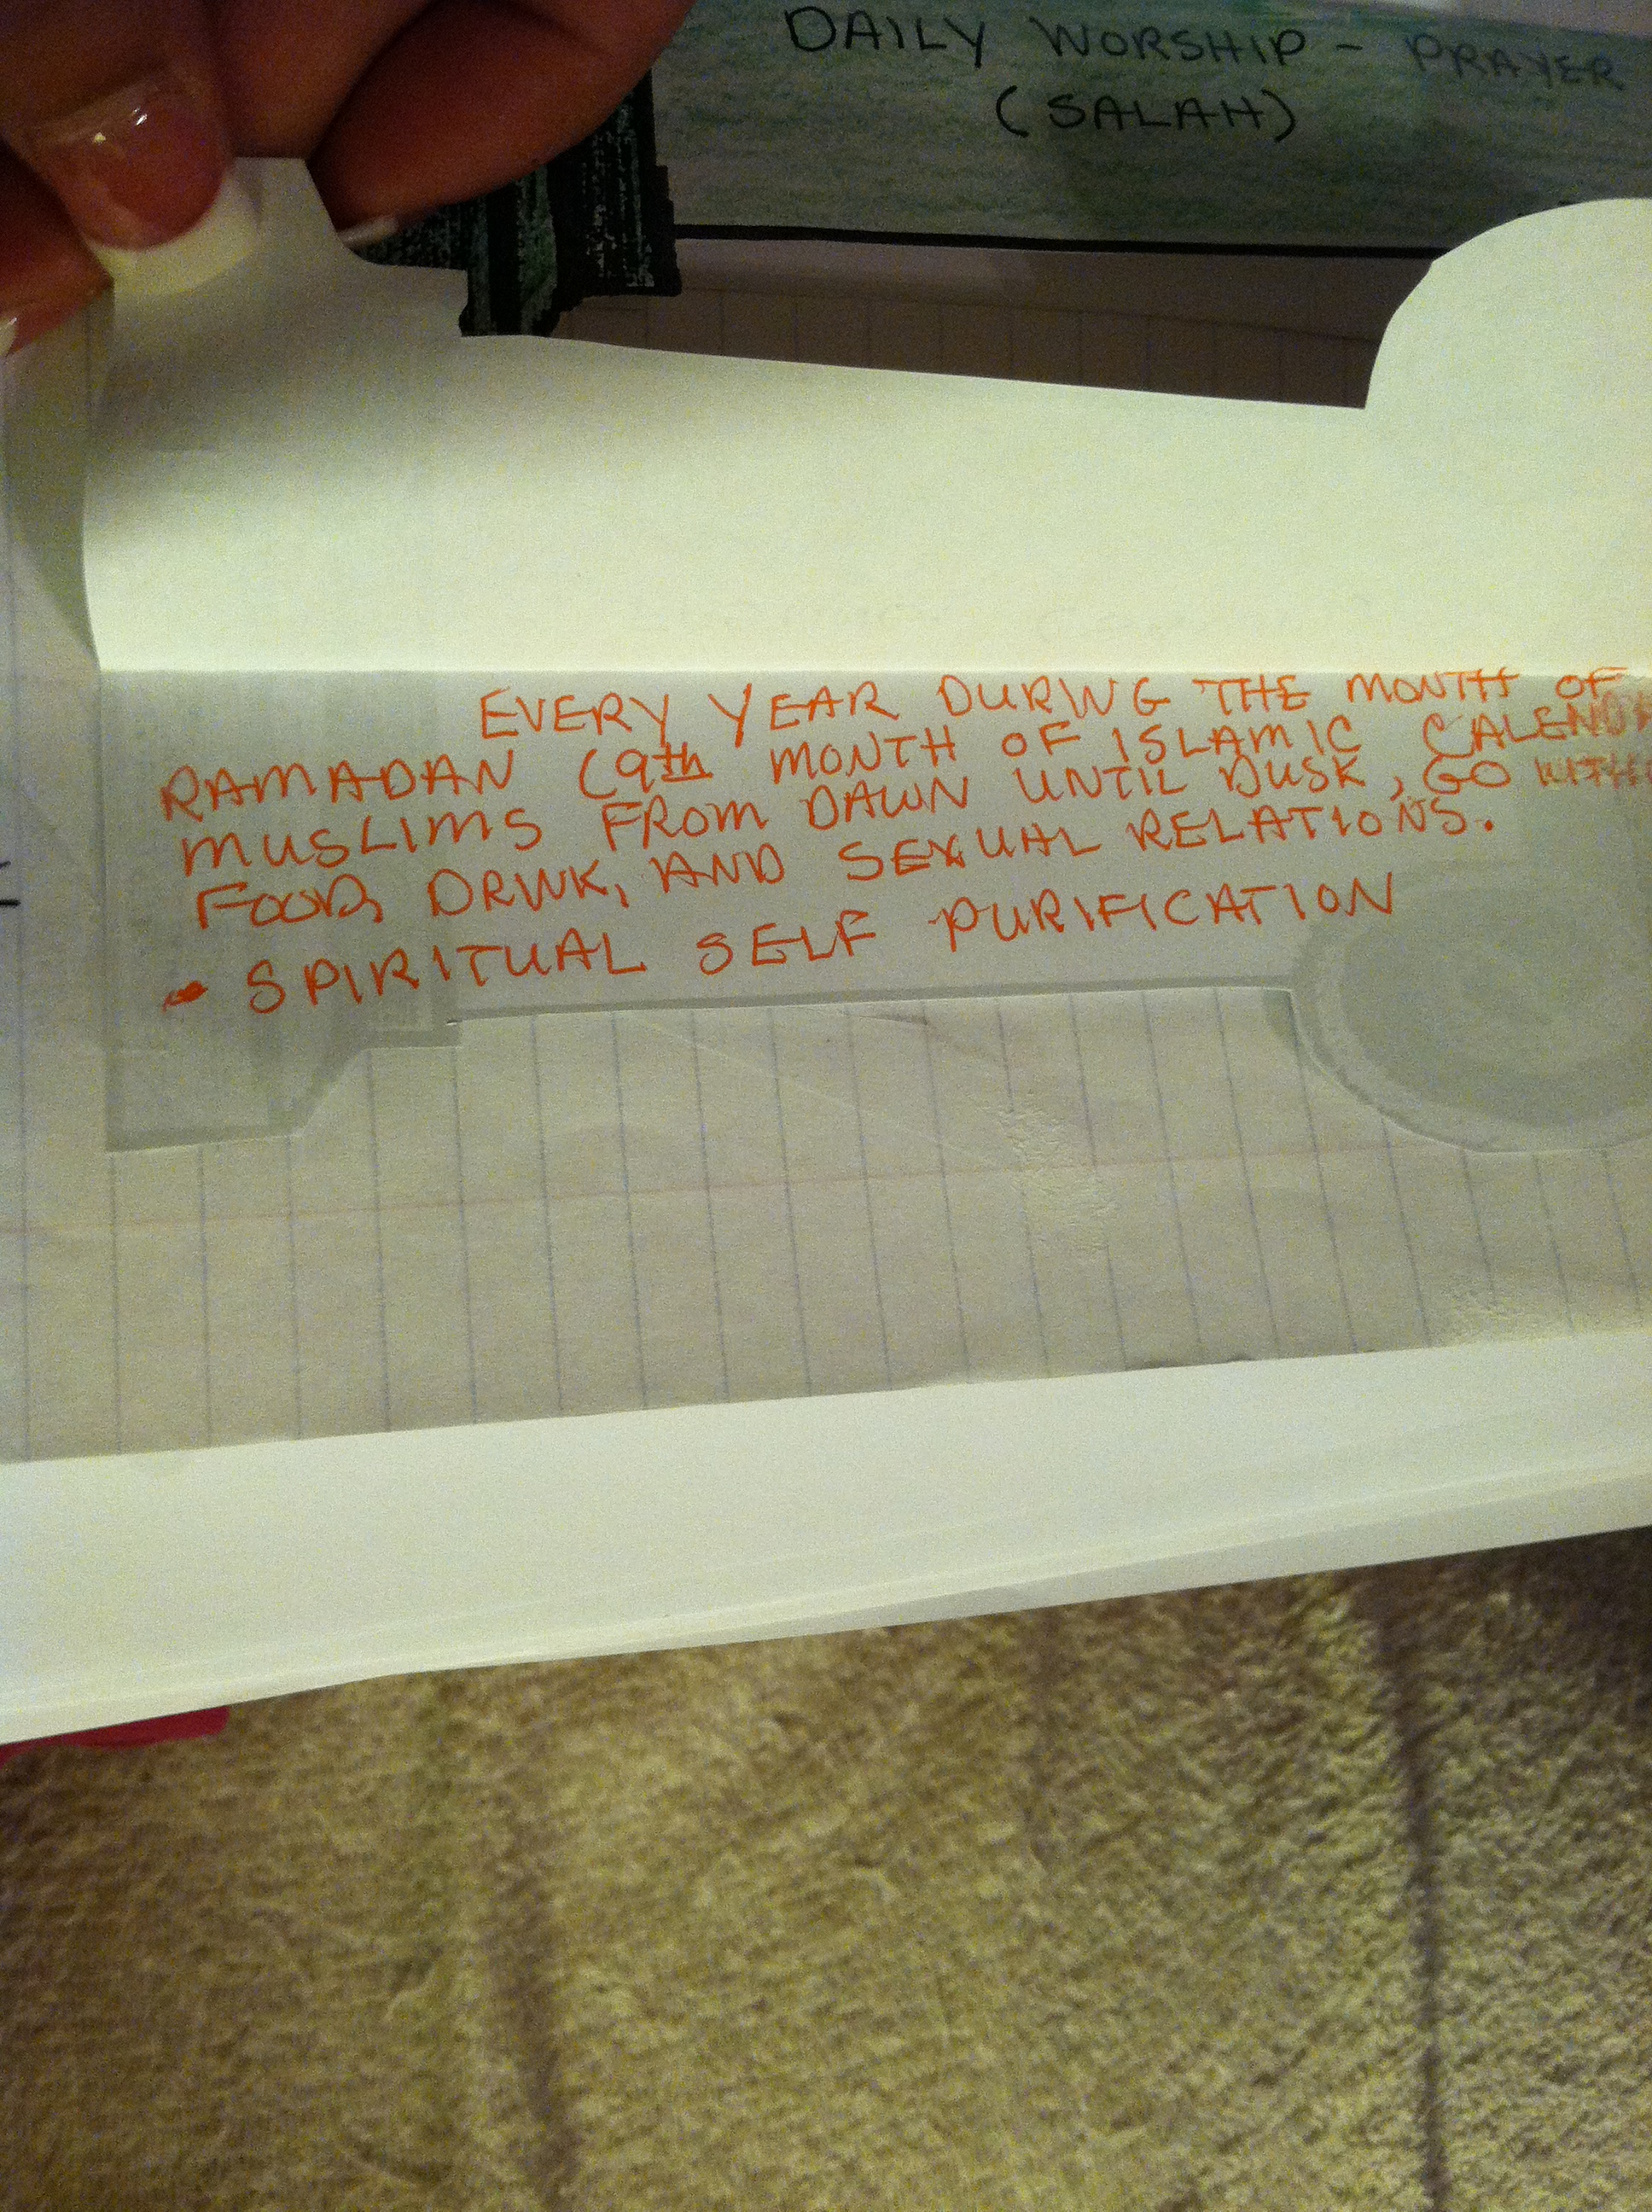 DAILY WORSHIP - PRAYER
(SALAH)
EVERY YEAR DURING THE MONTH OF
RAMADAN (9th MONTH OF ISLAMIC CALENDA
MUSLIMS FROM DAWN UNTIL DUSK, GO WITH
FOOD, DRINK, AND SEXUAL RELATIONS.
• SPIRITUAL SELF PURIFICATION